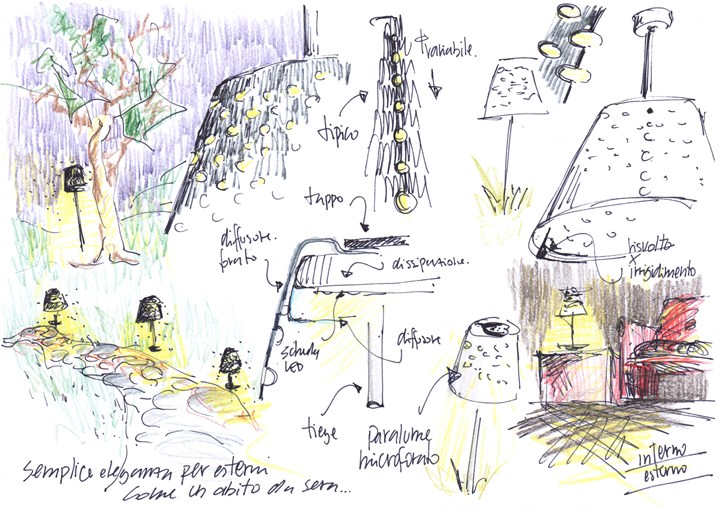 φ variabile.
tipico
tappo
diffusore
forato
dissipazione.
risvolto
x
irrigidimento
diffusore
scheda
LED
tige
paralume
microforato
interno
esterno
semplice eleganza per esterni
come un abito da sera...